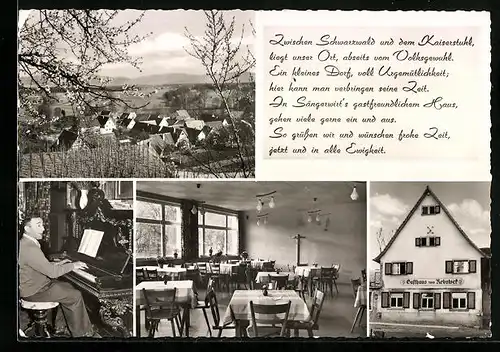 Zwischen Schwarzwald und dem Kaiserstuhl,
liegt unser Ort, abseits vom Volksgewühl.
Ein kleines Dorf, voll Urgemütlichkeit;
hier kann man verbringen seine Zeit.
In Sängerwirt's gastfreundlichem Haus,
gehen viele gerne ein und aus.
So grüßen wir und wünschen frohe Zeit,
jetzt und in alle Ewigkeit.
Gasthaus zum Rebstock